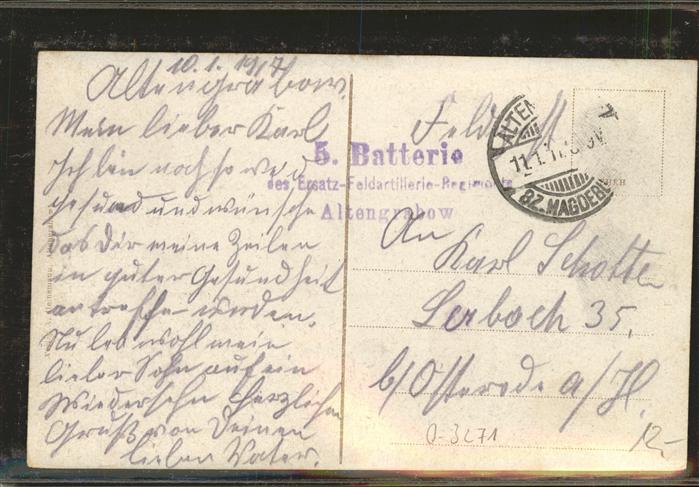 10.1.1917
Altengrabow.
Mein lieber Karl
Ich bin noch so weit
gesund und wünsche
das Dir meine Zeilen
in guter Gesundheit
antreffen werden.
Nu leb wohl mein
lieber Sohn auf ein
Wiedersehn Herzlichen
Gruß von Deinen
lieben Vater.
5. Batterie
des Ersatz-Feldartillerie-Regiments
Altengrabow
ALTEN
11.1.17
BZ. MAGDEB
An
Karl Schotte
Lerbach 35.
b/ Osterode a/H.
0-3271
12.-